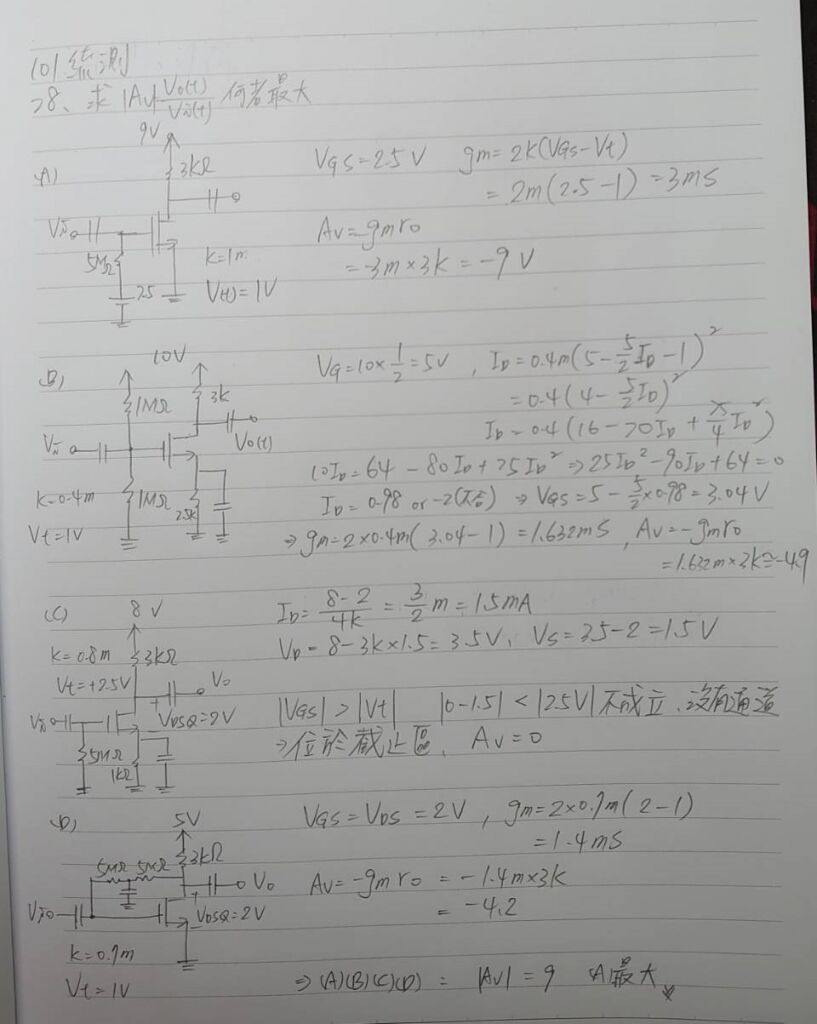 101 統測
28、求 |Av| Vo(t)/Vi(t) 何者最大
A)
9V
3kΩ
Vi
5MΩ
2.5
k=1m
V(t)=1V
VGS=2.5V gm=2k(VGS-Vt)
=2m(2.5-1)=3ms
Av=gmro
=-3m×3k=-9V
B)
10V
1MΩ
3k
Vi
Vo(t)
k=0.4m
1MΩ
2.5k
Vt=1V
VG=10×1/2=5V, ID=0.4m(5-5/2ID-1)²
=0.4(4-5/2ID)²
ID=0.4(16-20ID+25/4ID²)
10ID=64-80ID+25ID²⇒25ID²-90ID+64=0
ID=0.98 or -2(不合)⇒VGS=5-5/2×0.98=3.04V
⇒gm=2×0.4m(3.04-1)=1.632mS, Av=-gmro
=1.632m×3k≅-4.9
(C)
8V
k=0.8m
3kΩ
Vt=+2.5V
Vo
Vi
VDSQ=2V
5MΩ
1kΩ
ID=8-2/4k=3/2m=1.5mA
VD=8-3k×1.5=3.5V、VS=3.5-2=1.5V
|VGS|>|Vt| |0-1.5|<|2.5V|不成立、沒有通道
⇒位於截止區、Av=0
D)
5V
3kΩ
5MΩ 5MΩ
Vo
Vi
VDSQ=2V
k=0.7m
Vt=1V
VGS=VDS=2V, gm=2×0.7m(2-1)
=1.4mS
Av=-gmro=-1.4m×3k
=-4.2
⇒(A)(B)(C)(D)= |Av|=9 (A)最大